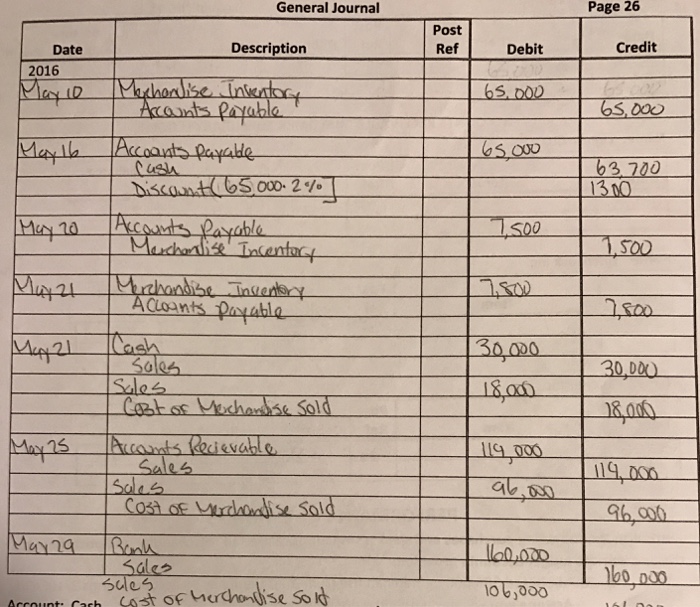 General Journal Page 26
Date Description Post Ref Debit Credit
2016
May 10 Merchandise Inventory 65,000
Accounts Payable 65,000
May 16 Accoonts Payable 65,000
Cash 63,700
Discount [65,000.2%] 1300
May 20 Accounts Payable 7,500
Merchandise Incentory 7,500
May 21 Merchandise Inventory 7,800
Accounts payable 7,800
May 21 Cash 30,000
Sales 30,000
Sales 18,000
Cost of Merchandise Sold 18,000
May 25 Accounts Recievable 119,000
Sales 119,000
Sales 96,000
Cost of Merchandise Sold 96,000
May 29 Bank 160,000
Sales 160,000
Sales 106,000
Account: Cash Cost of Merchandise Sold